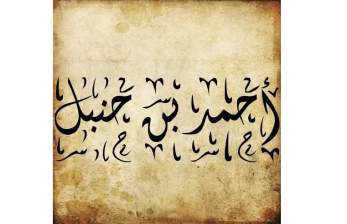 أحمد بن حنبل